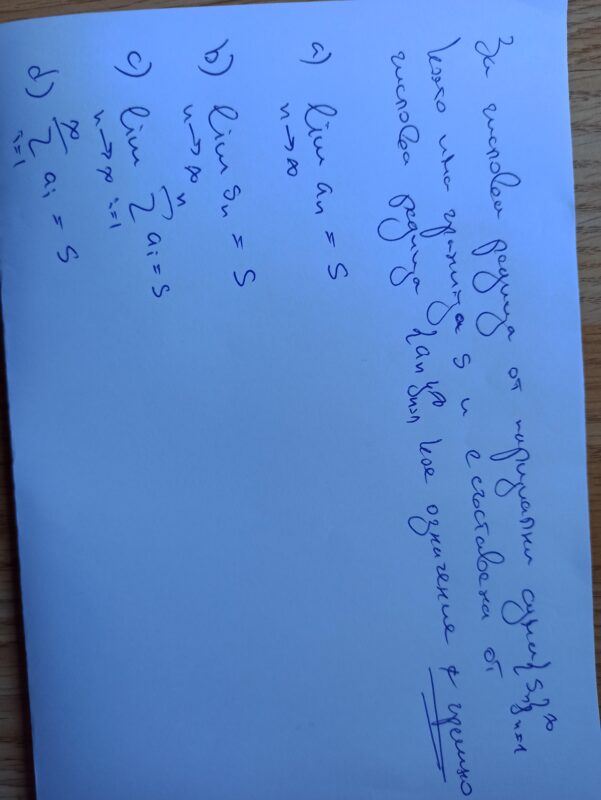 За числова редица от парциални суми {Sn}∞n=1
която има граница S и е съставена от
числова редица {an}∞n=1 кое означение е грешно
a) lim n→∞ an = S
b) lim n→∞ Sn = S
c) lim n→∞ n∑i=1 ai = S
d) ∞∑i=1 ai = S